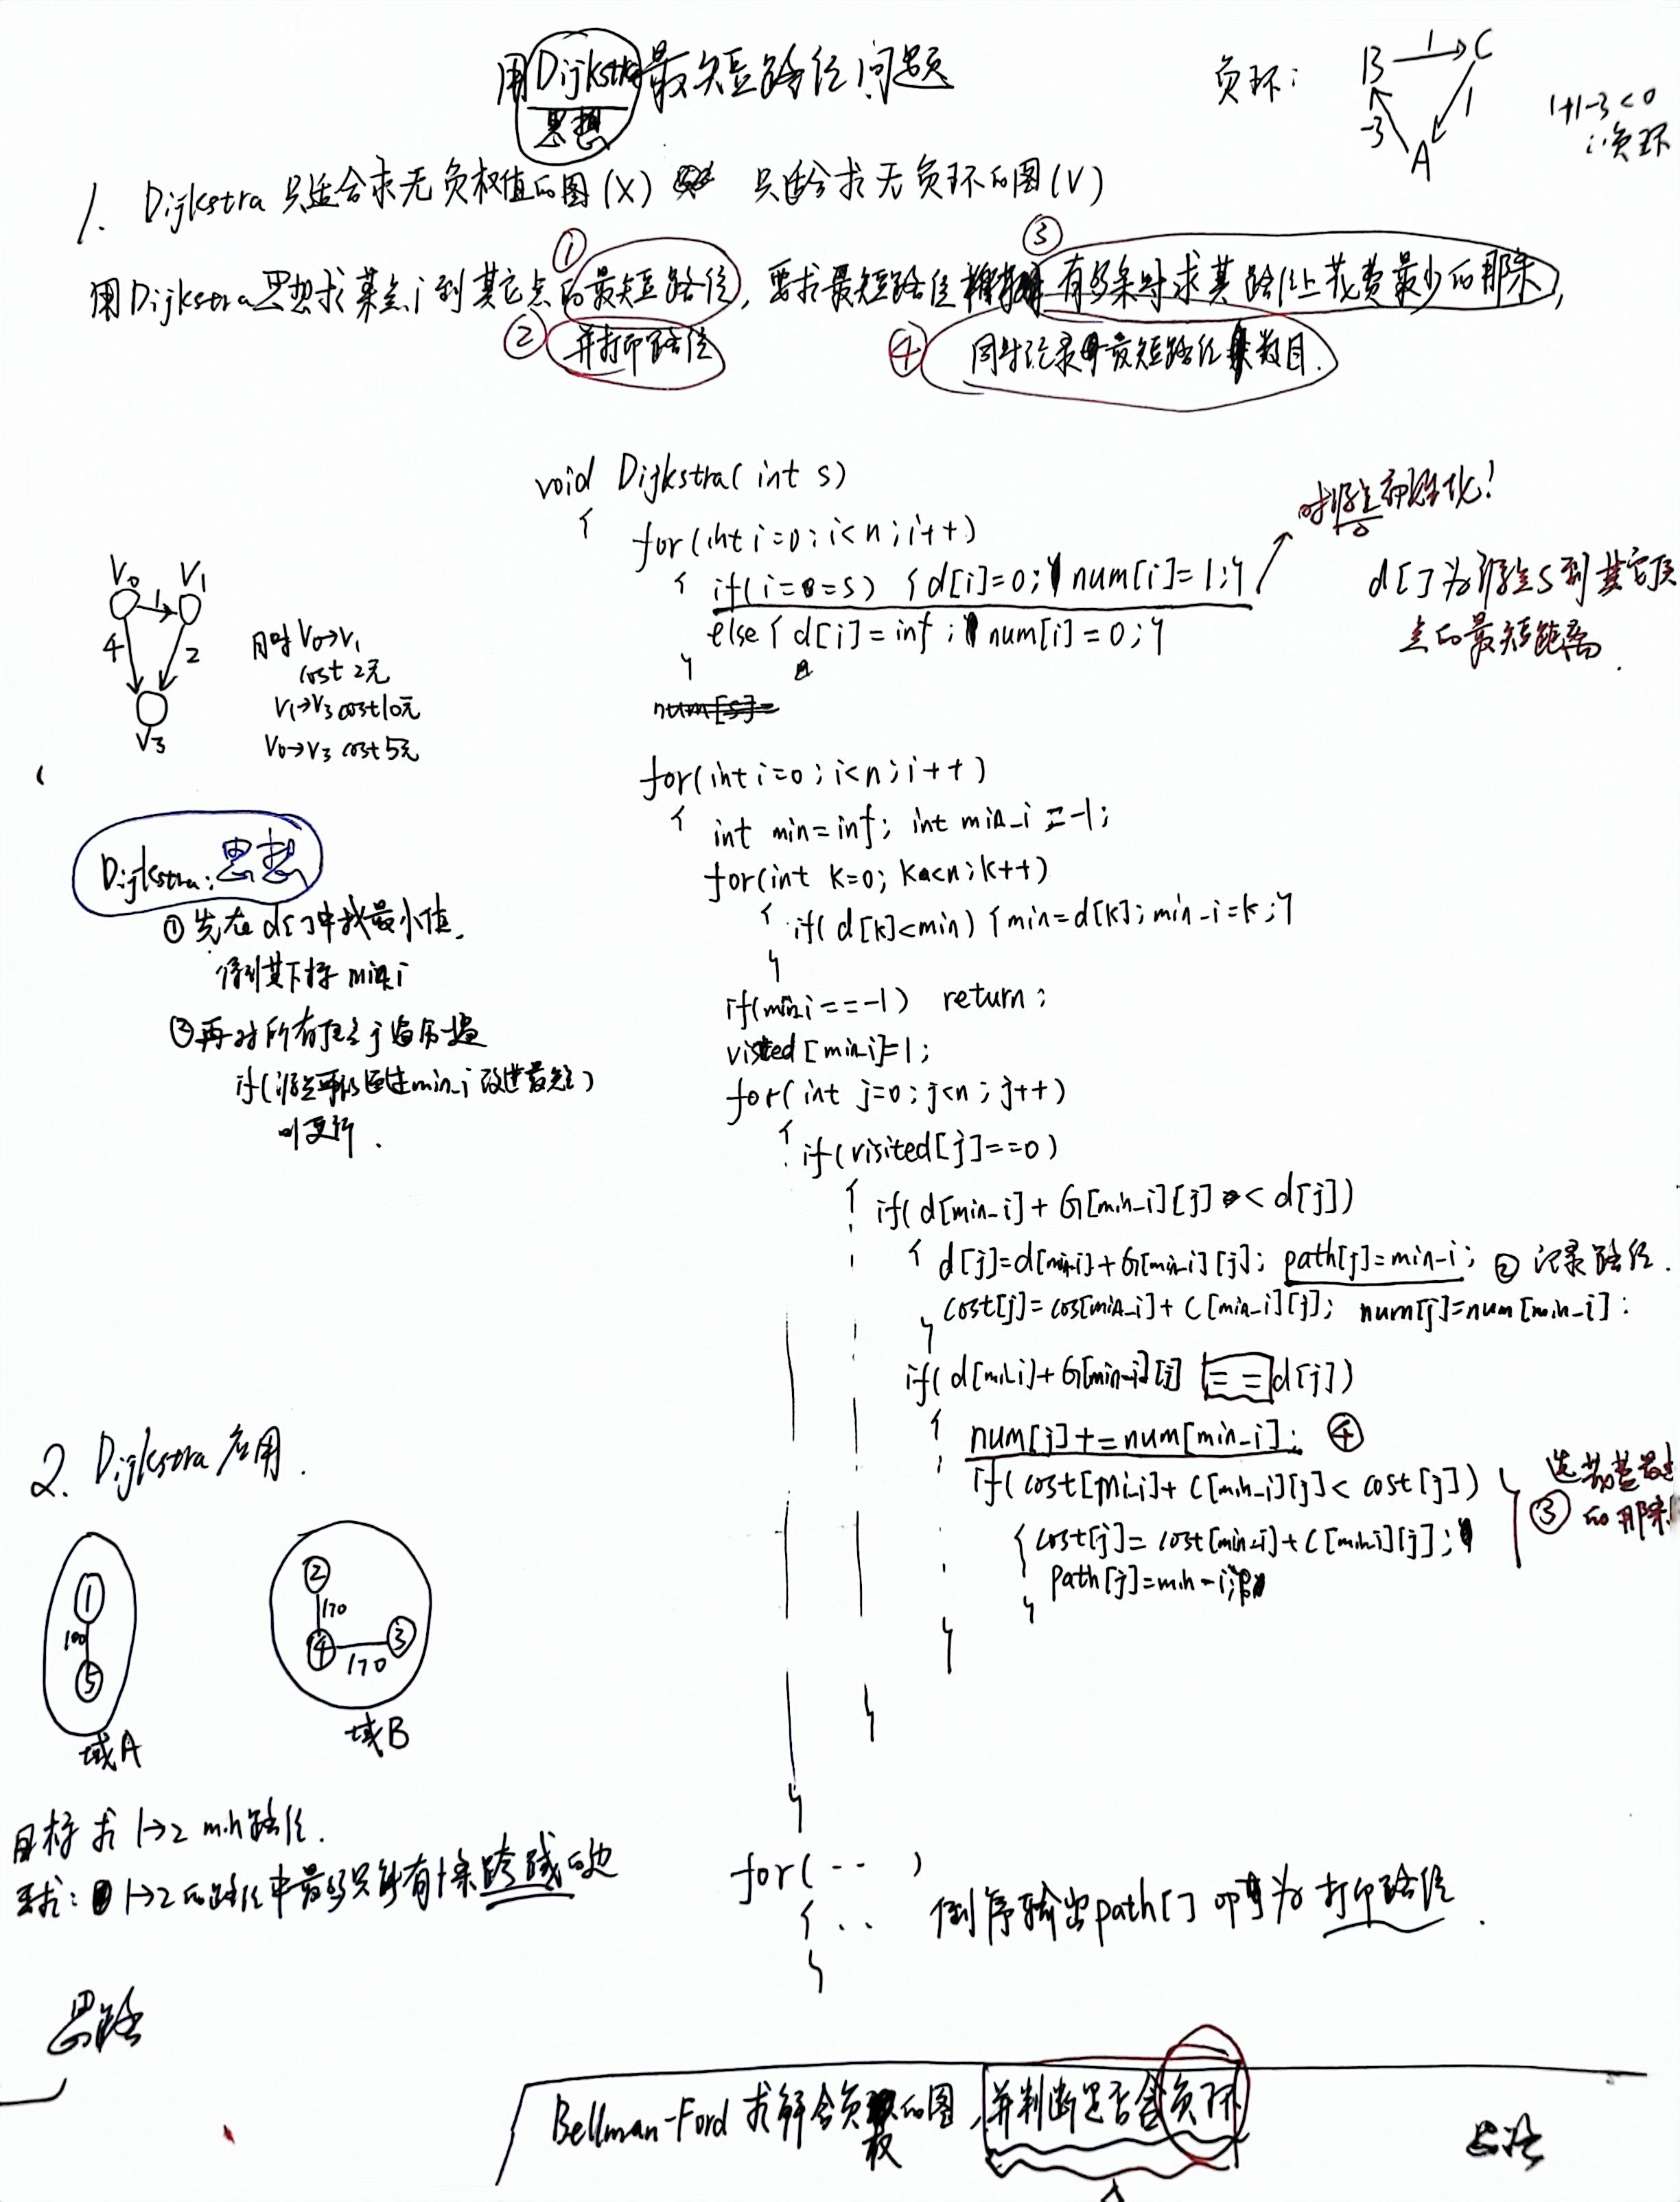 用Dijkstra最短路径问题
思想
负环:
B 1 C
-3 1
A
1+1-3<0
∴负环
1. Dijkstra 只适合求无负权值的图(X) 只适合求无负环的图(V)
① ③
用Dijkstra思想求某点i到其它点的最短路径, 要求最短路径有多条时求其路径上花费最少的那条,
② 并打印路径 ④ 同时记录最短路径条数目.
void Dijkstra( int s)
{ for(int i=0; i<n; i++)
{ if(i==s) {d[i]=0; num[i]=1;}
对源点初始化!
else { d[i]=inf; num[i]=0;}
}
d[]为源点S到其它顶
点的最短距离.
V0 V1
1
4 2
V3
同时V0→V1
cost 2元
V1→V3 cost 10元
V0→V3 cost 5元
for(int i=0; i<n; i++)
{ int min=inf; int min_i=-1;
for(int k=0; k<n; k++)
{ if( d[k]<min) {min=d[k]; min_i=k;}
}
if(min_i==-1) return;
visted[min_i]=1;
for( int j=0; j<n; j++)
{ if(visited[j]==0)
{ if( d[min_i]+G[min_i][j]<d[j])
{ d[j]=d[min_i]+G[min_i][j]; path[j]=min_i; ② 记录路径.
cost[j]=cos[min_i]+C[min_i][j]; num[j]=num[min_i];
}
if( d[min_i]+G[min_i][j] == d[j])
{ num[j]+=num[min_i]; ④
if( cost[min_i]+C[min_i][j]<cost[j])
{ cost[j]=cost[min_i]+C[min_i][j];
path[j]=min_i;
}
③ 选花费最少
的那条!
}
}
}
Dijkstra: 思想
① 先在d[]中找最小值,
得到其下标 min_i
②再对所有顶点j遍历一遍
if(源点可以通过min_i改进最短)
则更新.
2. Dijkstra应用.
1
100
5
域A
2
170
4 170 3
域B
目标求1→2 min路径.
要求: 1→2的路径中最多只能有1条跨域的边
for( ·· )
{ ··
}
倒序输出path[] 即可为打印路径.
思路
Bellman-Ford 求解含负权的图, 并判断是否含负环